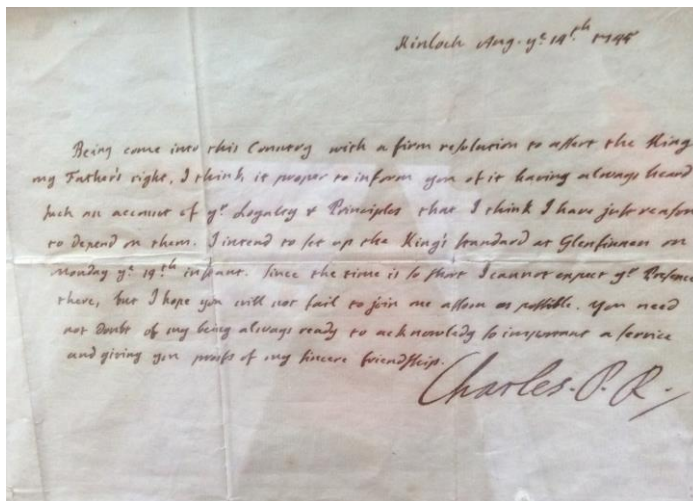 Kinloch Aug. ye. 14th. 1745
Being come into this Country with a firm resolution to assert the King
my Father's right, I think it proper to inform you of it having always heard
such an account of yr. Loyalty & Principles that I think I have just reason
to depend on them. I intend to set up the King's standard at Glenfinnen on
Monday ye. 19th. instant. since the time is so short I cannot expect yr. Presence
there, but I hope you will not fail to join me assoon as possible. you need
not Doubt of my being always ready to acknowledg so important a service
and giving you proofs of my sincere friendship.
Charles. P. R.